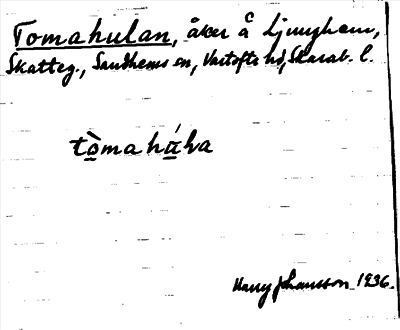 Tomahulan, åker å Ljunghem,
Skatteg., Sandhems sn, Vartofta hd, Skarab. l.
tòmahúla
Harry Johansson 1936.